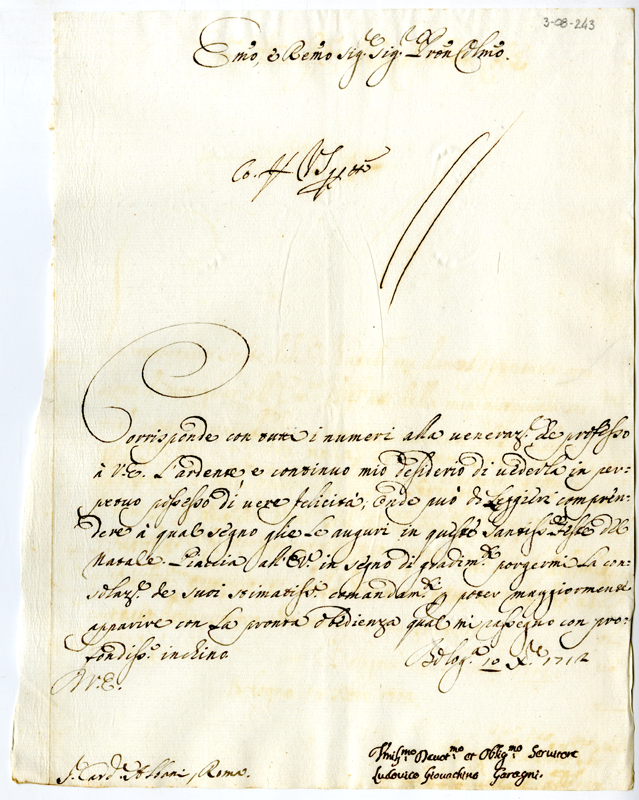 3-08-243
Emo, e Remo Sig.r Sig.r Pron Colmo.
Corrisponde con tutti i numeri alla veneraz.e che professo
à V.E. L'ardente, e continuo mio desiderio di vederla in per-
petuo possesso di vere felicità; Onde può di Leggieri compren-
dere à qual segno glie Le auguri in queste Santiss.e Feste del
Natale. Piaccia all'E.V. in segno di gradim.to porgermi La con-
solaz.e de suoi stimatiss.i comandam.ti p poter maggiormente
apparire con La pronta obedienza qual mi rassegno con pro-
fondiss.o inchino
Bolog.a 10 X.re 1712
D V.E.
S. Card. Albani, Roma.
Umil.mo Devot.mo et Oblig.mo Servitore
Ludovico Giovachino Garagni.